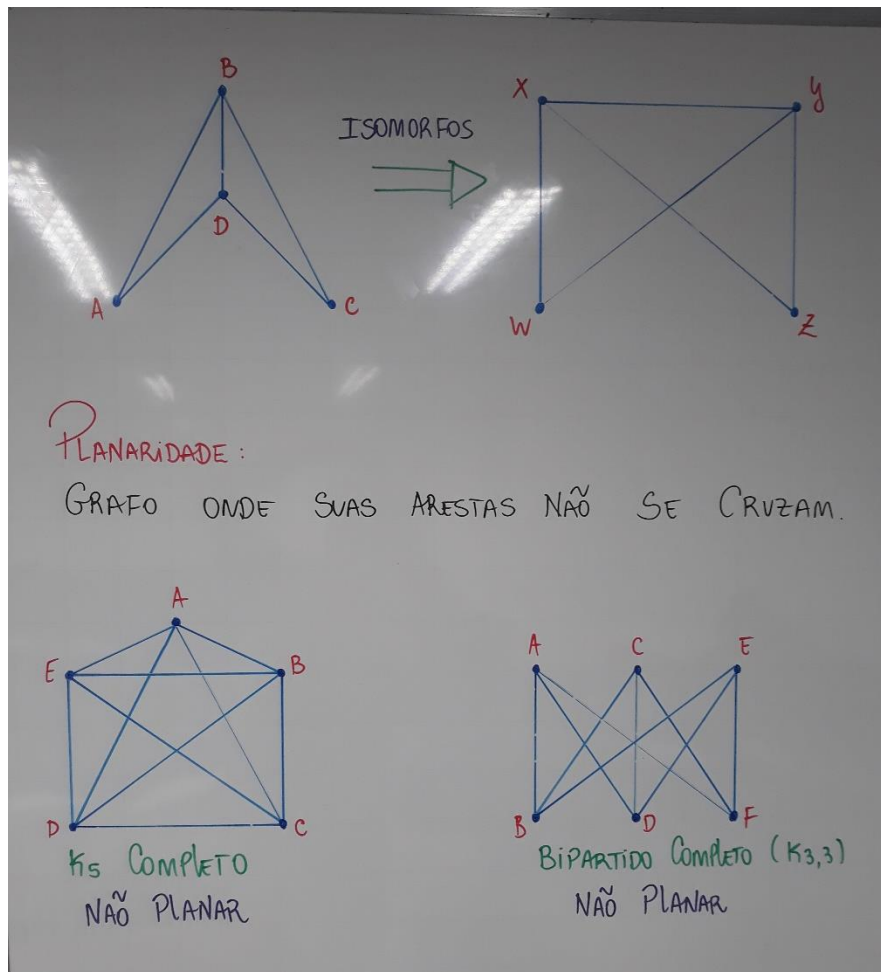 B
ISOMORFOS
D
A
C
X
y
W
Z
PLANARIDADE:
GRAFO ONDE SUAS ARESTAS NÃO SE CRUZAM.
A
E
B
D
C
K5 COMPLETO
NÃO PLANAR
A
C
E
B
D
F
BIPARTIDO COMPLETO (K3,3)
NÃO PLANAR